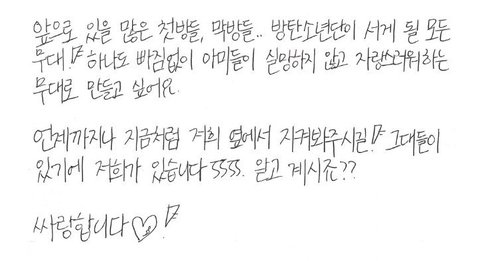 앞으로 있을 많은 첫방들, 막방들.. 방탄소년단이 서게 될 모든
무대! 하나도 빠짐없이 아미들이 실망하지 않고 자랑스러워하는
무대로 만들고 싶어요.
언제까지나 지금처럼 저희 옆에서 지켜봐주시길! 그대들이
있기에 저희가 있습니다 ssss. 알고 계시죠??
싸랑합니다♡!